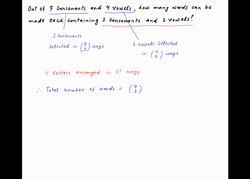 Out of 7 consonants and 4 vowels, how many words can be
made each containing 3 consonants and 2 vowels?
3 consonants
selected in (7 3) ways
2 vowels selected
in (4 2) ways
5 letters arranged in 5! ways
∴ Total number of words = (7 3)